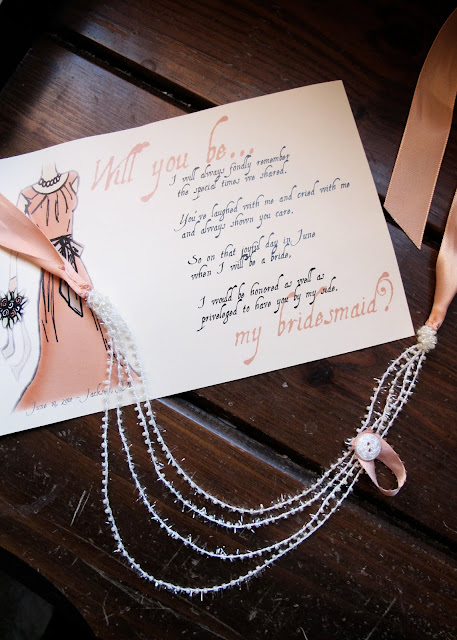 Will you be...
I will always fondly remember
the special times we shared.
You've laughed with me and cried with me
and always shown you care.
So on that joyful day in June
when I will be a bride,
I would be honored as well as
priveleged to have you by my side.
my bridesmaid?
June